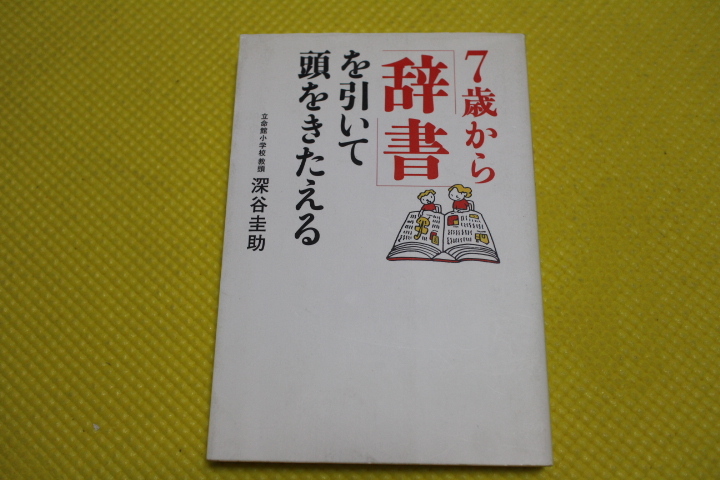 7歳から
辞書
を引いて
頭をきたえる
立命館小学校 教頭 深谷圭助